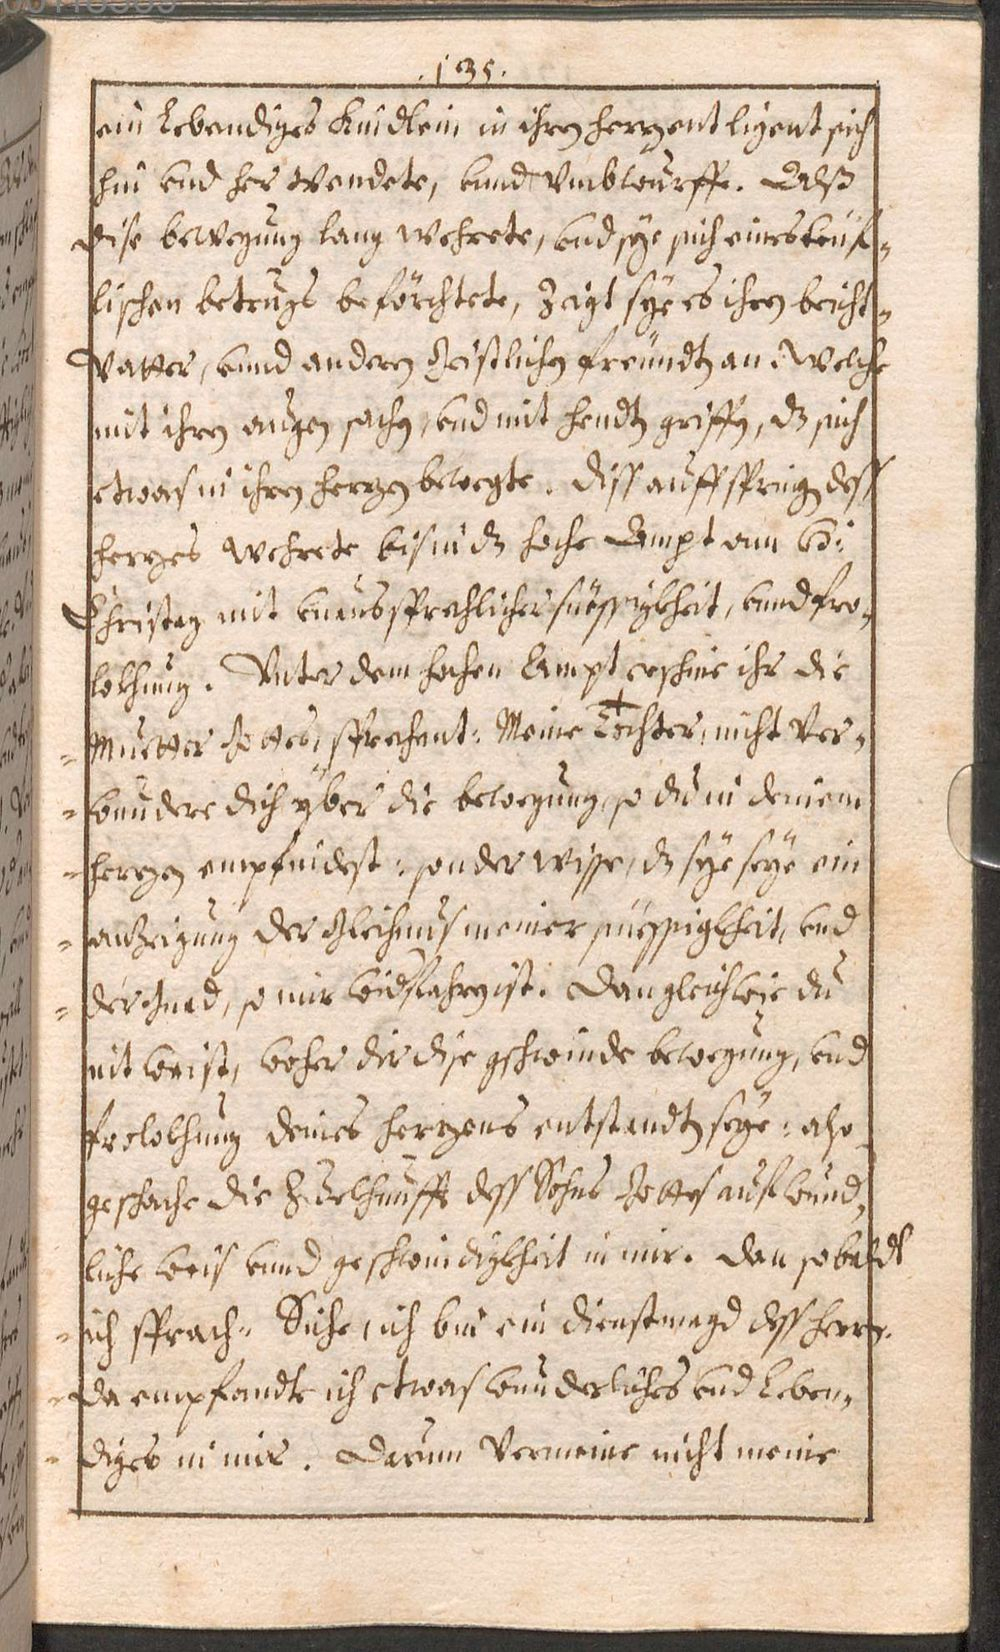 .135.
ein Lebendiges Kindlein in ihren hertzen ligent sich
hin vnd her wendete, vnnd vmbwurffe. Alß
dise bewegung lang wehrete, vnd sye sich eines teüf„
lischen betrugs beförchtete, zeigt sÿe es ihren beicht„
vatter, vnnd anderen Geistlichen freündten an: welche
mit ihren augen sachen, vnd mit hendten griffen, dz sich
etwas in ihren hertzen bewegte. Diss auffspringen dess
hertzes wehrete bis in dz hoche Ampt am
Christag mit vnaussprechlicher süessigkheit, vnnd fro„
lokhung. Vnter dem hochen Ampt erschine ihr die
„ Muetter Gottes, sprechent: Meine Tochter, nicht ver„
„ wundere dich yber die bewegung, so du in deinem
„ hertzen empfindest: sonder wisse, dz sÿe seÿe ein
„ anzeigung der Gleichnus meiner süessigkheit, vnd
„ der Gnad, so mir widfahren ist. Dan gleich wie du
nit weist, woher dir dise gschwinde bewegung, vnd
frolokhung deines hertzens entstandten seÿe: also
geschache die Zuekhunfft dess Sohns Gottes auf wund„
liche weis vnnd geschwindigkheit in mir. Dan sobaldt
„ ich sprach: Sihe, ich bin ein dienstmagd dess herren.
„ Da empfandte ich etwas wunderliches vnd Leben„
„ diges in mir. Darum vermeine nicht meine